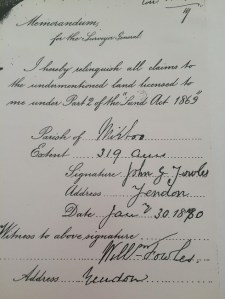 Memorandum
for the Surveyor General
I hereby relinquish all claims to
the undermentioned land licensed to
me under Part 2 of the "Land Act 1869"
Parish of
Extent 319 acres
Signature John G. Fowles
Address Yendon
Date Jany 30. 1880
Witness to above signature
Willm Fowles.
Address Yendon